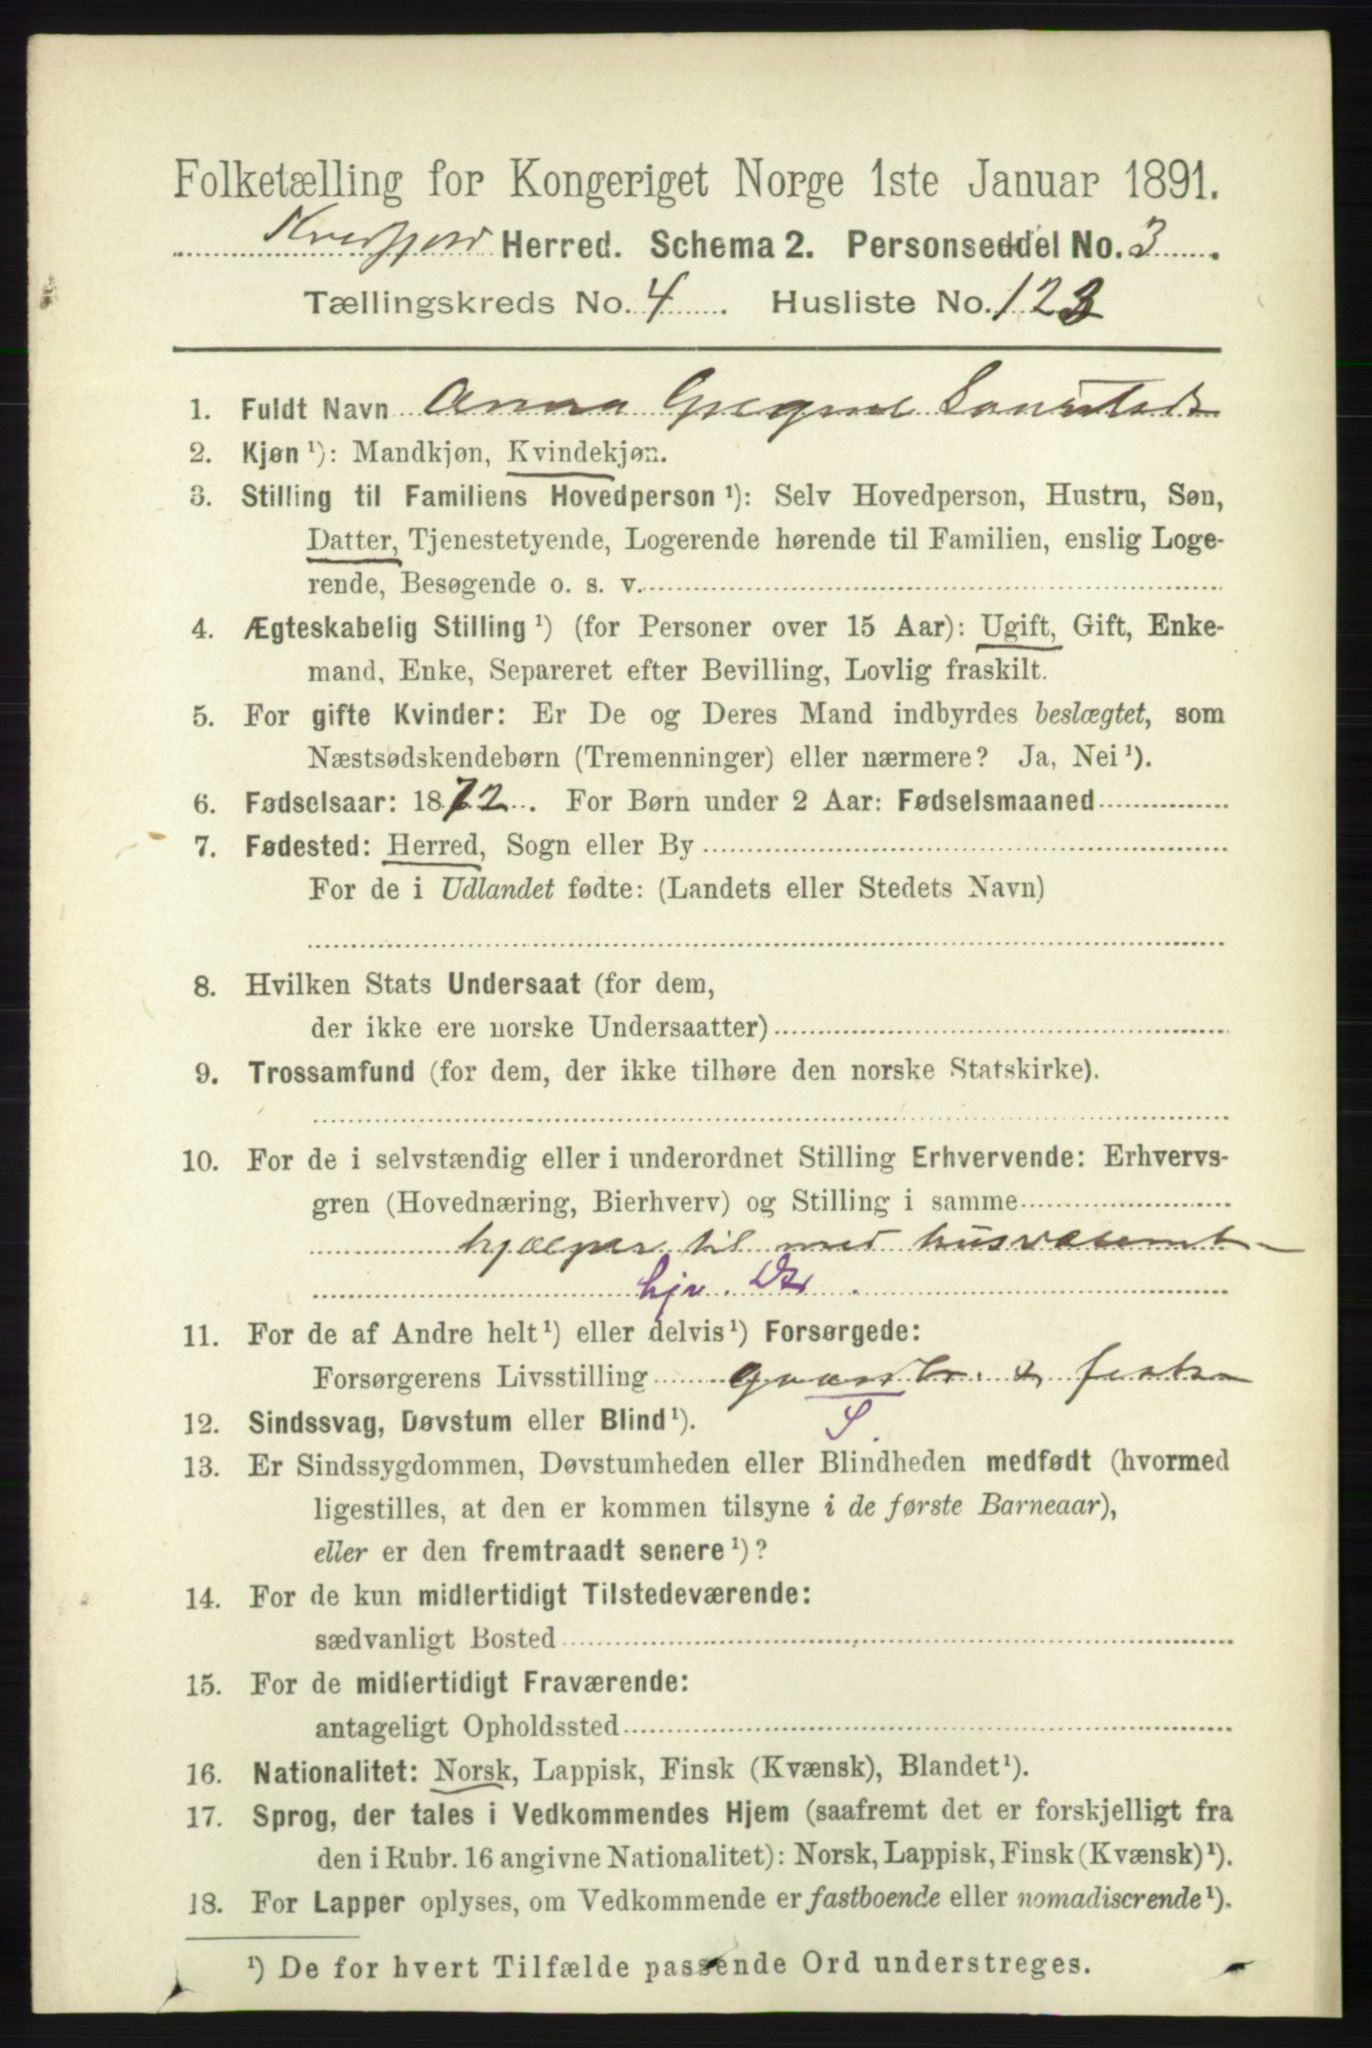 Folketælling for Kongeriget Norge 1ste Januar 1891.
Kvedfjord Herred. Schema 2. Personseddel No. 3.
Tællingskreds No. 4. Husliste No. 123
1. Fuldt Navn Anna
2. Kjøn ¹): Mandkjøn, Kvindekjøn.
3. Stilling til Familiens Hovedperson ¹): Selv Hovedperson, Hustru, Søn,
Datter, Tjenestetyende, Logerende hørende til Familien, enslig Loge-
rende, Besøgende o. s. v.
4. Ægteskabelig Stilling ¹) (for Personer over 15 Aar): Ugift, Gift, Enke-
mand, Enke, Separeret efter Bevilling, Lovlig fraskilt.
5. For gifte Kvinder: Er De og Deres Mand indbyrdes beslægtet, som
Næstsødskendebørn (Tremenninger) eller nærmere? Ja, Nei ¹).
6. Fødselsaar: 1872. For Børn under 2 Aar: Fødselsmaaned
7. Fødested: Herred, Sogn eller By
For de i Udlandet fødte: (Landets eller Stedets Navn)
8. Hvilken Stats Undersaat (for dem,
der ikke ere norske Undersaatter)
9. Trossamfund (for dem, der ikke tilhøre den norske Statskirke).
10. For de i selvstændig eller i underordnet Stilling Erhvervende: Erhvervs-
gren (Hovednæring, Bierhverv) og Stilling i samme
hjælper til med husvæsent
hjv. Dr
11. For de af Andre helt ¹) eller delvis ¹) Forsørgede:
Forsørgerens Livsstilling gaardbr. &
S.
12. Sindssvag, Døvstum eller Blind ¹).
13. Er Sindssygdommen, Døvstumheden eller Blindheden medfødt (hvormed
ligestilles, at den er kommen tilsyne i de første Barneaar),
eller er den fremtraadt senere ¹)?
14. For de kun midlertidigt Tilstedeværende:
sædvanligt Bosted
15. For de midlertidigt Fraværende:
antageligt Opholdssted
16. Nationalitet: Norsk, Lappisk, Finsk (Kvænsk), Blandet ¹).
17. Sprog, der tales i Vedkommendes Hjem (saafremt det er forskjelligt fra
den i Rubr. 16 angivne Nationalitet): Norsk, Lappisk, Finsk (Kvænsk) ¹).
18. For Lapper oplyses, om Vedkommende er fastboende eller nomadiserende ¹).
¹) De for hvert Tilfælde passende Ord understreges.